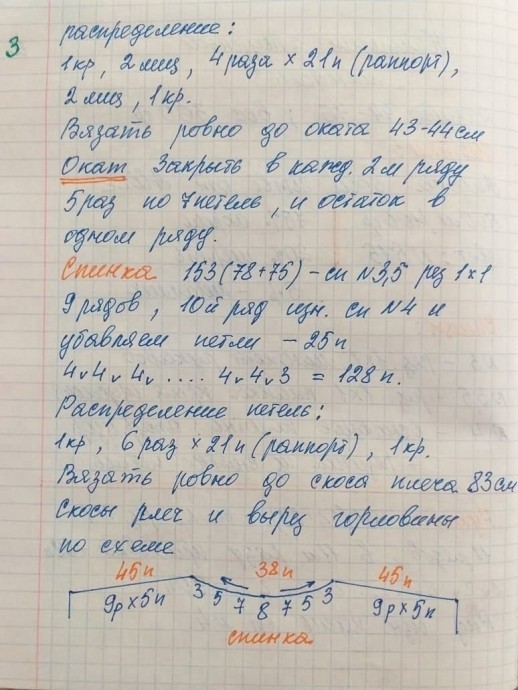 3
распределение:
1кр, 2 лиц, 4 раза × 21п (раппорт),
2 лиц, 1 кр.
Вязать ровно до оката 43-44 см
Окат Закрыть в кажд. 2м ряду
5 раз по 7 петель, и остаток в
одном ряду.
Спинка 153 (78+75) – сп N3,5 рез 1×1
9 рядов, 10й ряд изн. сп N4 и
убавляем петли – 25п
4v4v4v .... 4v4v3 = 128п.
Распределение петель:
1кр, 6 раз × 21п (раппорт), 1кр.
Вязать ровно до скоса плеча 83см
Скосы плеч и вырез горловины
по схеме
45п 38п 45п
9р×5п 3 5 7 8 7 5 3 9р×5п
спинка